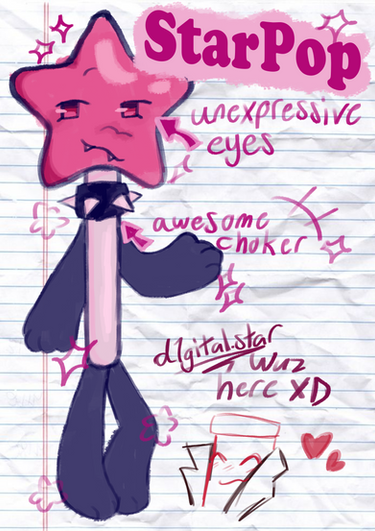 StarPop
unexpressive
eyes
awesome
choker
d1gital.star
wuz
here XD